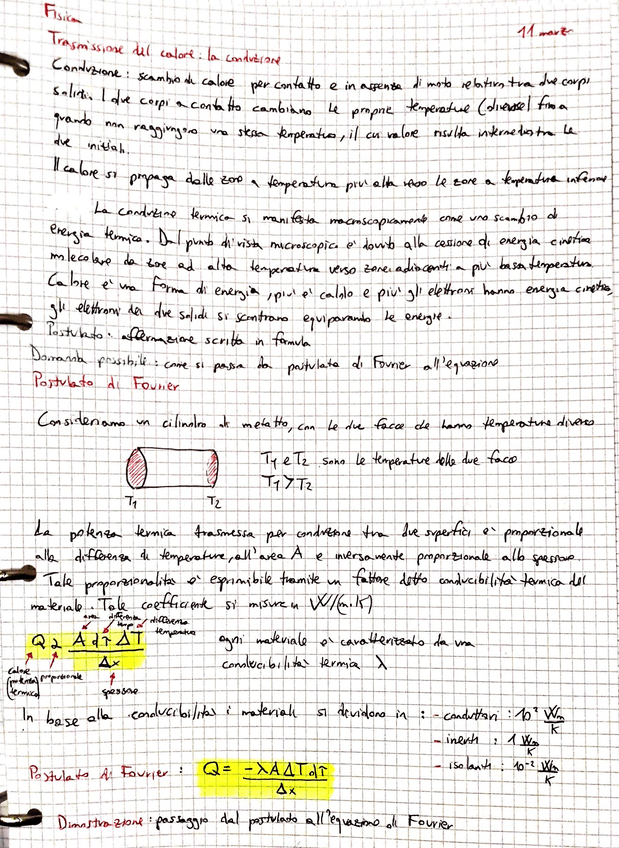 Fisica
11 marzo
Trasmissione del calore: la conduzione
Conduzione: scambio di calore per contatto e in assenza di moto relativo tra due corpi
solidi. I due corpi a contatto cambiano le proprie temperature (diverse) fino a
quando non raggiungono una stessa temperatura, il cui valore risulta intermedio tra le
due iniziali.
Il calore si propaga dalle zone a temperatura più alta verso le zone a temperatura inferiore
La conduzione termica si manifesta macroscopicamente come uno scambio di
energia termica. Dal punto di vista microscopico è dovuto alla cessione di energia cinetica
molecolare da zone ad alta temperatura verso zone adiacenti a più bassa temperatura.
Calore è una forma di energia, più è caldo e più gli elettroni hanno energia cinetica,
gli elettroni dei due solidi si scontrano equiparando le energie.
Postulato: affermazione scritta in formula
Domanda possibile: come si passa da postulato di Fourier all'equazione
Postulato di Fourier
Consideriamo un cilindro di metallo, con le due facce che hanno temperature diverse
T1 e T2 sono le temperature delle due facce
T1 > T2
T1 T2
La potenza termica trasmessa per conduzione tra due superfici è proporzionale
alla differenza di temperature, all'area A e inversamente proporzionale allo spessore.
Tale proporzionalità è esprimibile tramite un fattore detto conducibilità termica del
materiale. Tale coefficiente si misura in W/(m·K)
area differenza temp differenza temperatura
Q α A dτ ΔT / Δx
calore (potenza termico) proporzionale
spessore
ogni materiale è caratterizzato da una
conducibilità termia λ
In base alla conducibilità i materiali si dividono in: - conduttori: 10² Wm/K
- inerti: 1 Wm/K
- isolanti: 10⁻² Wm/K
Postulato di Fourier: Q = -λ A ΔT dτ / Δx
Dimostrazione: passaggio dal postulato all'equazione di Fourier